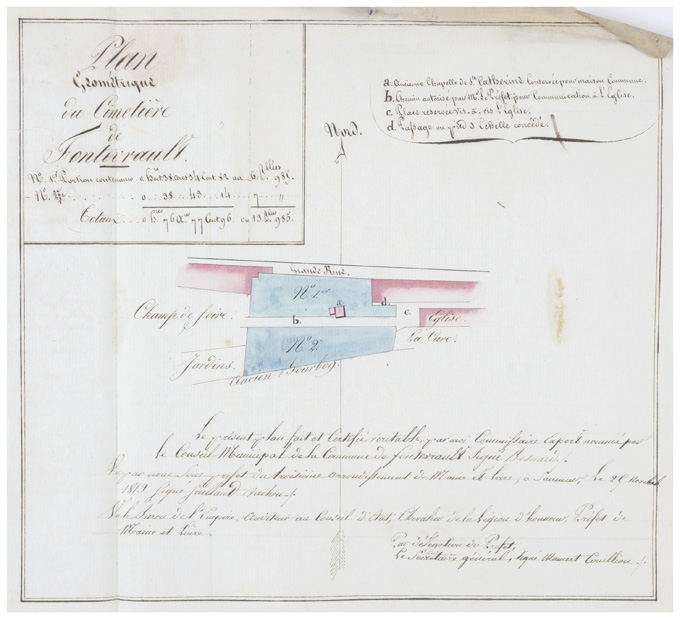 Plan
Géométrique
du Cimetière
de
Fontevrault.
Nº 1er Portion contenance 0 38 ares 34 Cent 82 au 6.
Nº 2e 0 38 43 14 7
Totaux 0 76 77 Cent 96 ou 13. 985.
a. Ancienne Chapelle de Ste Catherine Conservée pour maison Commune.
b. Chemin autorisé par Mr Le Préfet pour Communication à l'Eglise.
c. Place reservée vis-à-vis l'Eglise.
d. Passage au Echelle concédé.
Nord.
Grande Rue.
Nº 1er
a.
d.
Champ de foire.
b.
c.
Eglise.
Nº 2e
La Cure.
Jardins.
Ancien Bourbon.
Le présent plan fait et Certifié véritable par moi Commissaire Expert nommé par
le Conseil Municipal de la Commune de fontevrault Signé
Vu par nous Sous préfet du troisième arrondissement de Maine et Loire, à Saumur, Le
signé
Vu le Baron de l'Empire, Auditeur au Conseil d'Etat, Chevalier de la Légion d'honneur, Préfet de
Maine et Loire.
Par délégation du Préfet,
Le Secrétaire général, signé